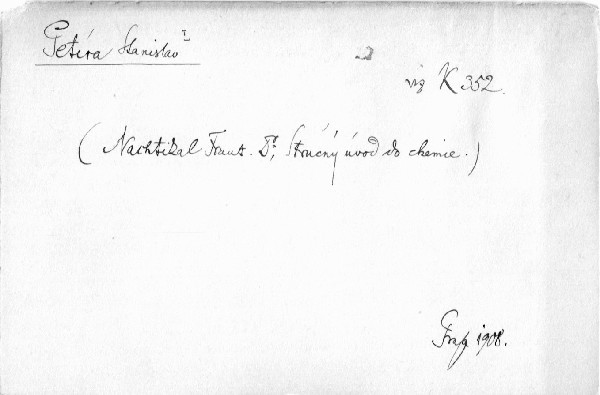 Petíra Stanislav
viz K 352.
(Nachtikal Frant. Dr, Stručný úvod do chemie.)
Prag 1908.